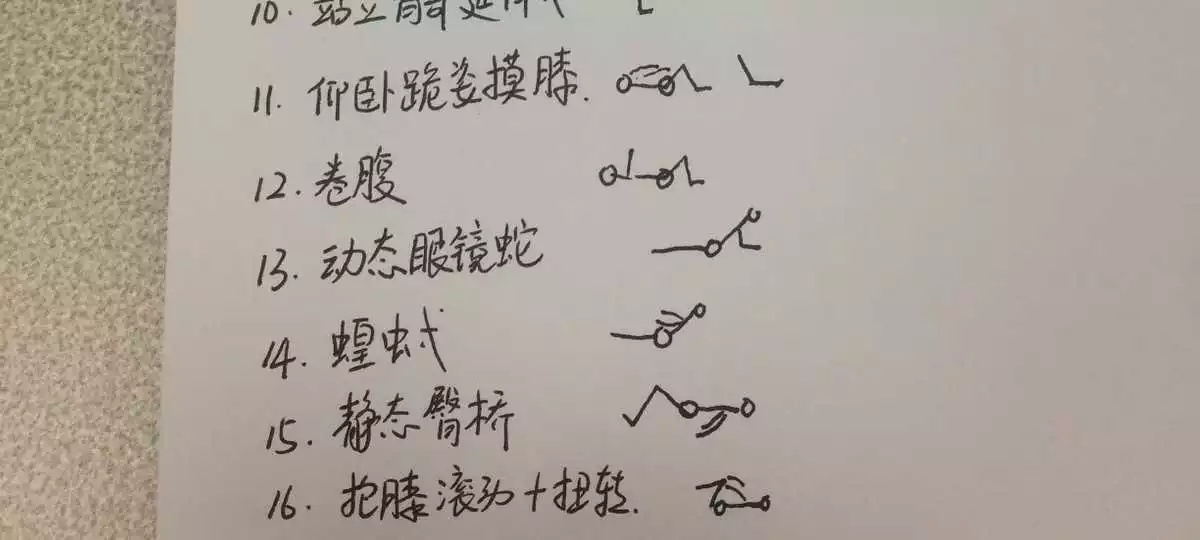 10. 站立肩部延伸式
11. 仰卧跪姿摸膝.
12. 卷腹
13. 动态眼镜蛇
14. 蝗虫式
15. 静态臀桥
16. 抱膝滚动+扭转.